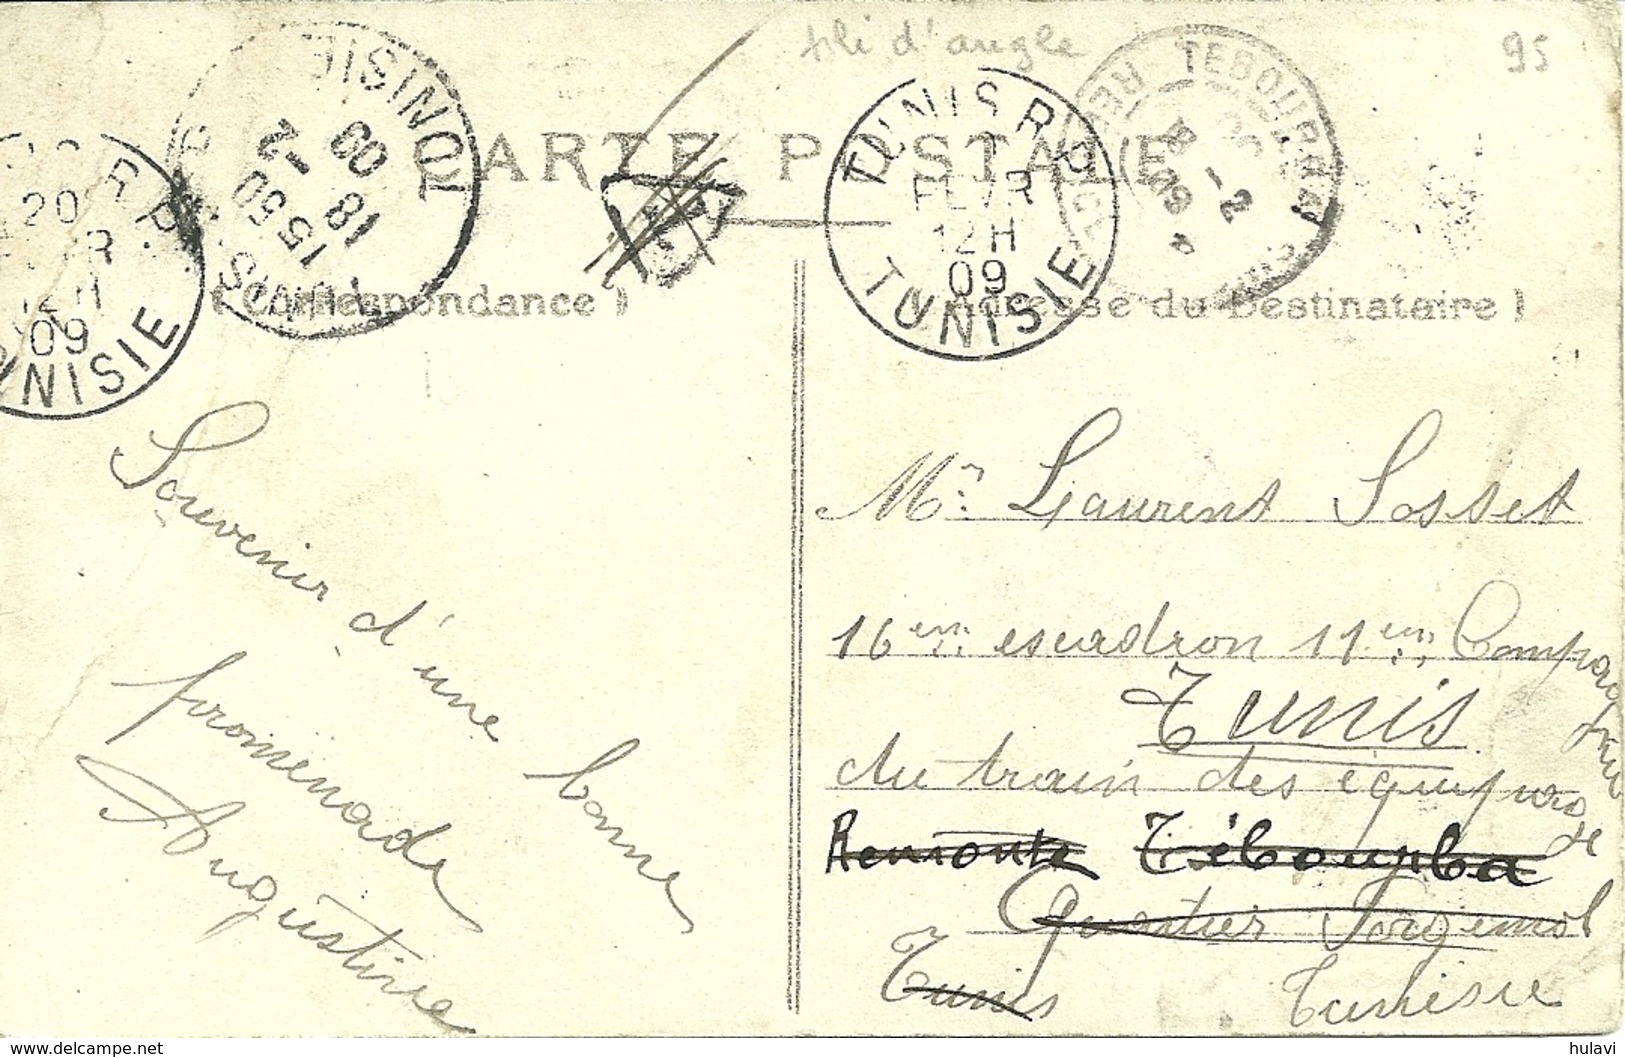 pli d'angle
95
CARTE POSTALE
TUNIS R.P.
FEVR
12H
09
TUNISIE
TEBOURBA
18 -2
09
TUNIS
15 50
18 -2
09
TUNISIE
20
R.P.
12H
09
TUNISIE
( Correspondance )
( Adresse du Destinataire )
Souvenir d'une bonne
promenade
Augustine
Mr. Laurent Sosset
16em escadron 11em Compag
Tunis
du train des équipages
Remonte Tébourba
Quartier Forgemol
Tunis Tunisie
hulavi